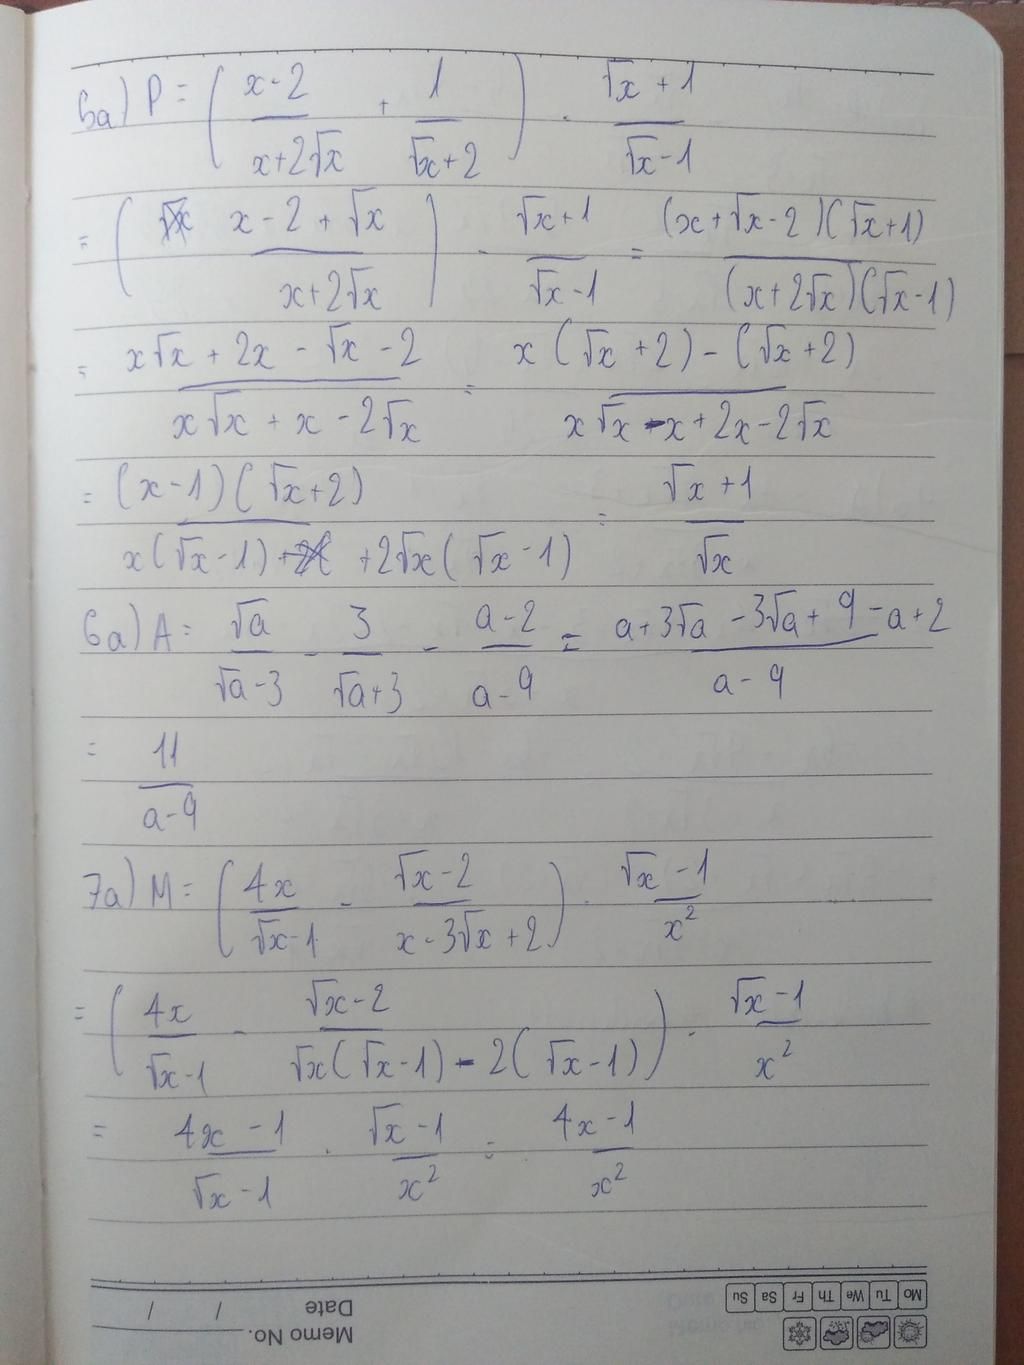 5a) P = ( (x-2)/(x+2√x) + 1/(√x+2) ) . (√x+1)/(√x-1)
= ( (x-2+√x)/(x+2√x) ) . (√x+1)/(√x-1) = (x+√x-2)(√x+1)/(x+2√x)(√x-1)
= (x√x + 2x - √x - 2)/(x√x + x - 2√x) = (x(√x+2) - (√x+2))/(x√x - x + 2x - 2√x)
= (x-1)(√x+2)/(x(√x-1) + 2√x(√x-1)) = (√x+1)/√x
6a) A = √a/(√a-3) - 3/(√a+3) - (a-2)/(a-9) = (a+3√a-3√a+9-a+2)/(a-9)
= 11/(a-9)
7a) M = ( 4x/(√x-1) - (√x-2)/(x-3√x+2) ) . (√x-1)/x²
= ( 4x/(√x-1) - (√x-2)/(√x(√x-1) - 2(√x-1)) ) . (√x-1)/x²
= (4x-1)/(√x-1) . (√x-1)/x² = (4x-1)/x²
Mo Tu We Th Fr Sa Su
Memo No.
Date / /